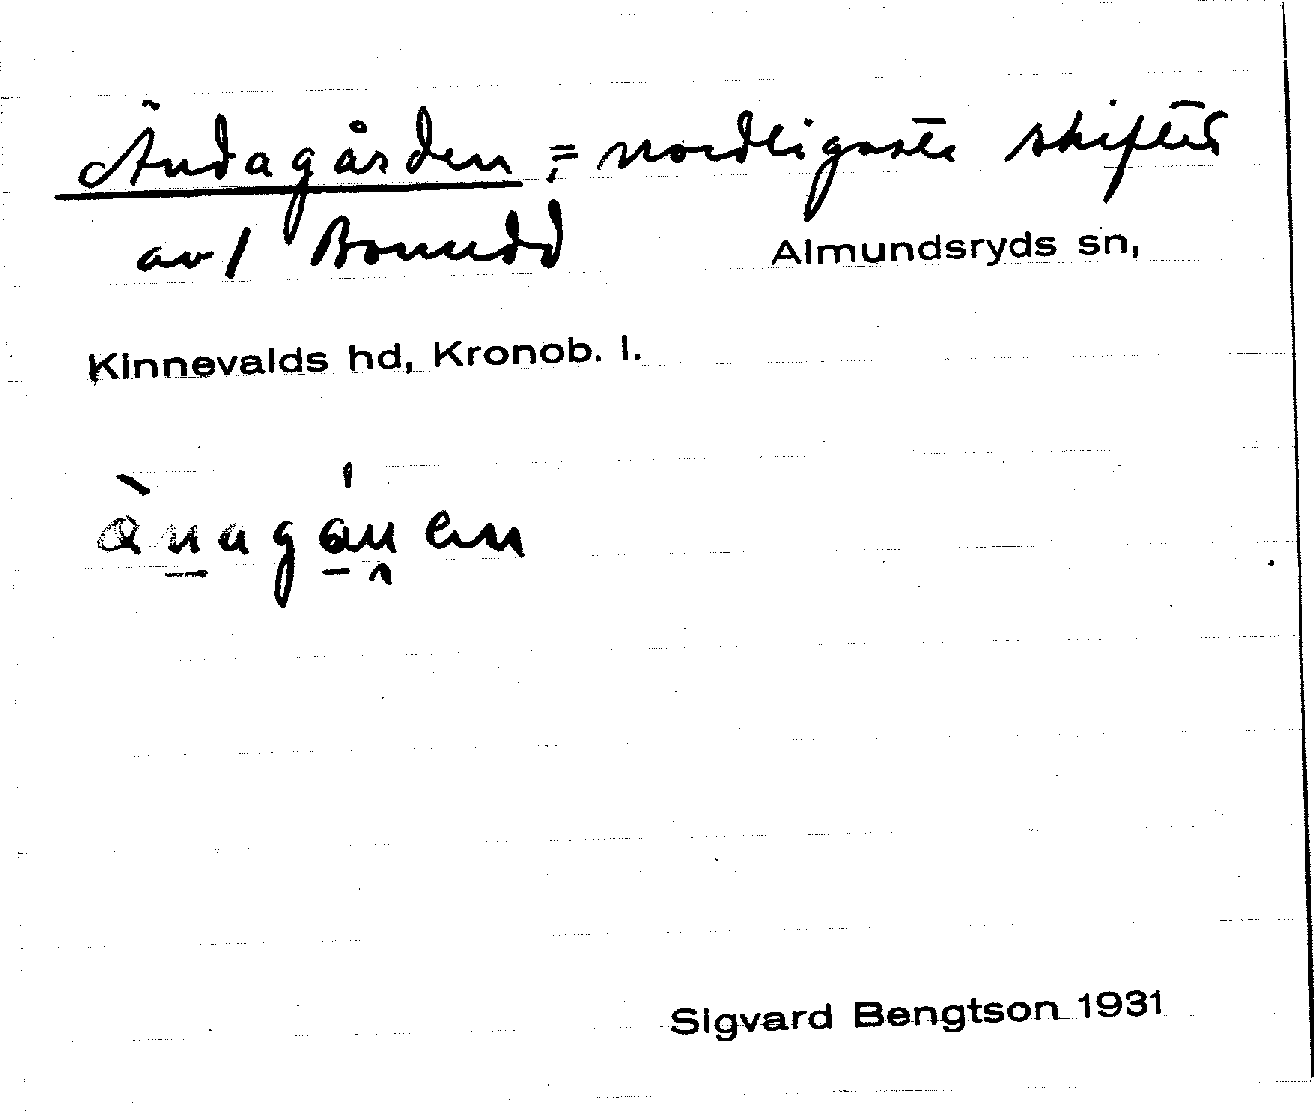 Ändagården, = nordligaste skiftet
av /
Almundsryds sn,
Kinnevalds hd, Kronob. l.
Sigvard Bengtson 1931